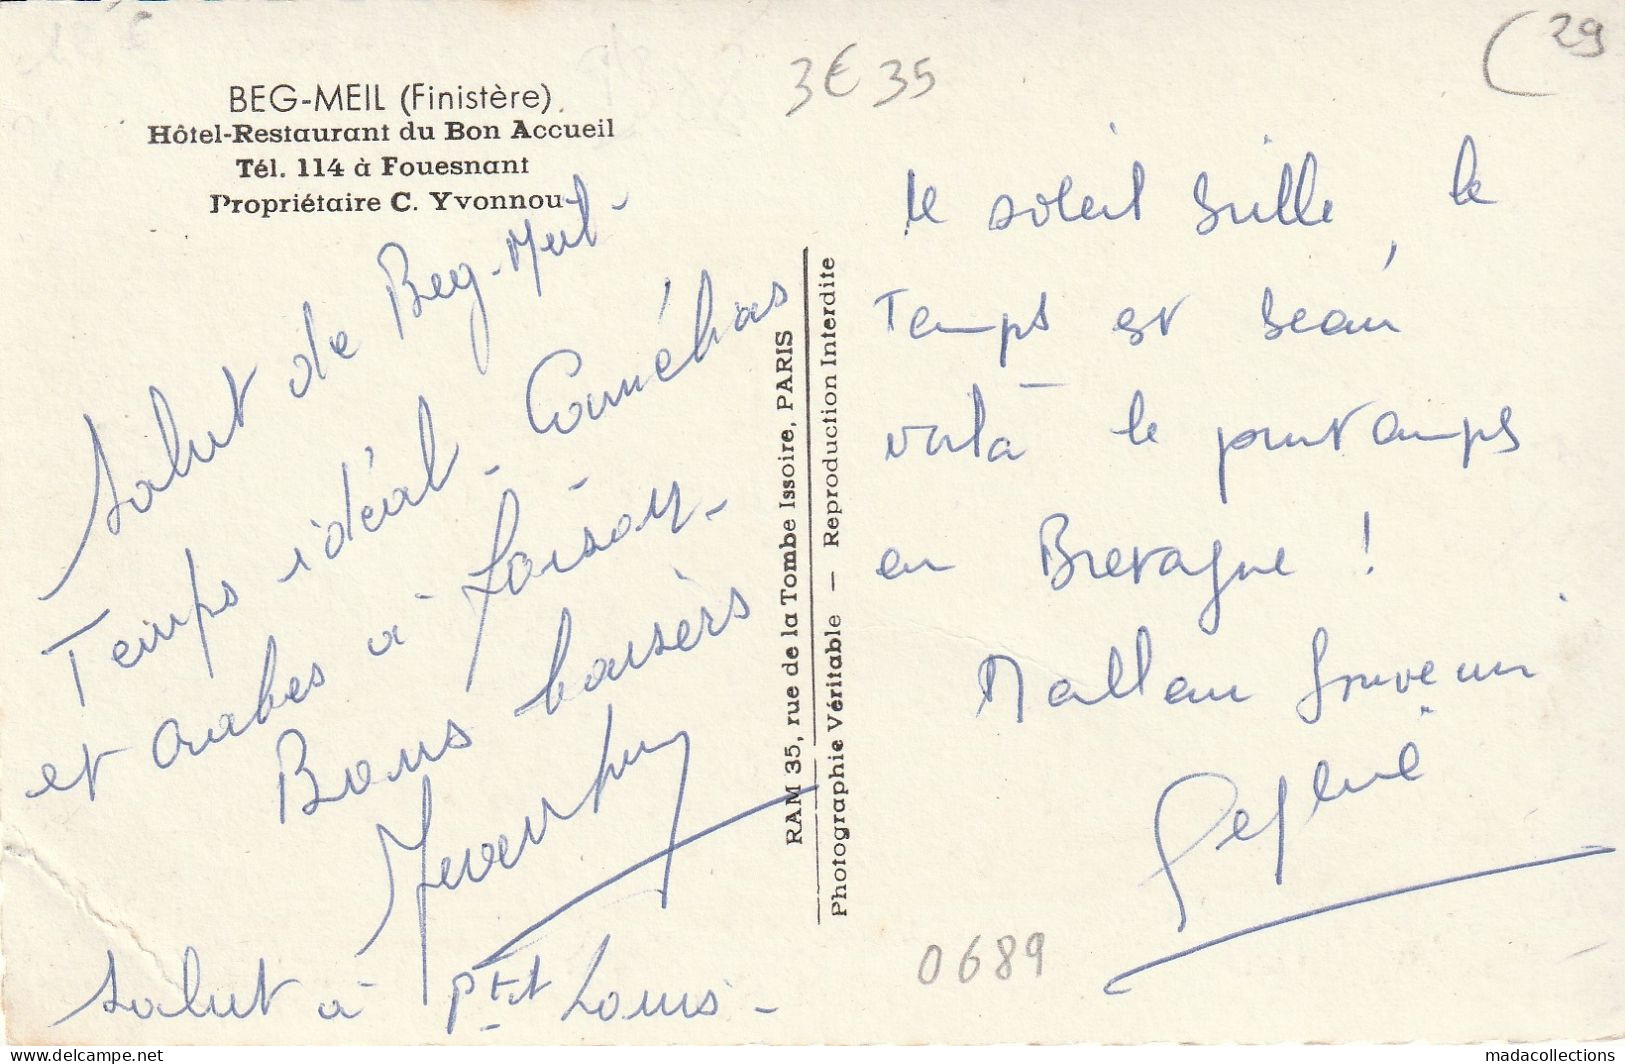 BEG-MEIL (Finistère)
Hôtel-Restaurant du Bon Accueil
Tél. 114 à Fouesnant
Propriétaire C. Yvonnou
Salut de Beg-Meil-
Temps idéal -
et crabes à foison -
Bons baisers
Salut à Ptit Louis -
RAM 35, rue de la Tombe Issoire, PARIS
Photographie Véritable — Reproduction Interdite
3€ 35
29
le soleil brille, le
Temps est beau
voilà le printemps
en Bretagne !
souvenir
0689
www.delcampe.net
madacollections